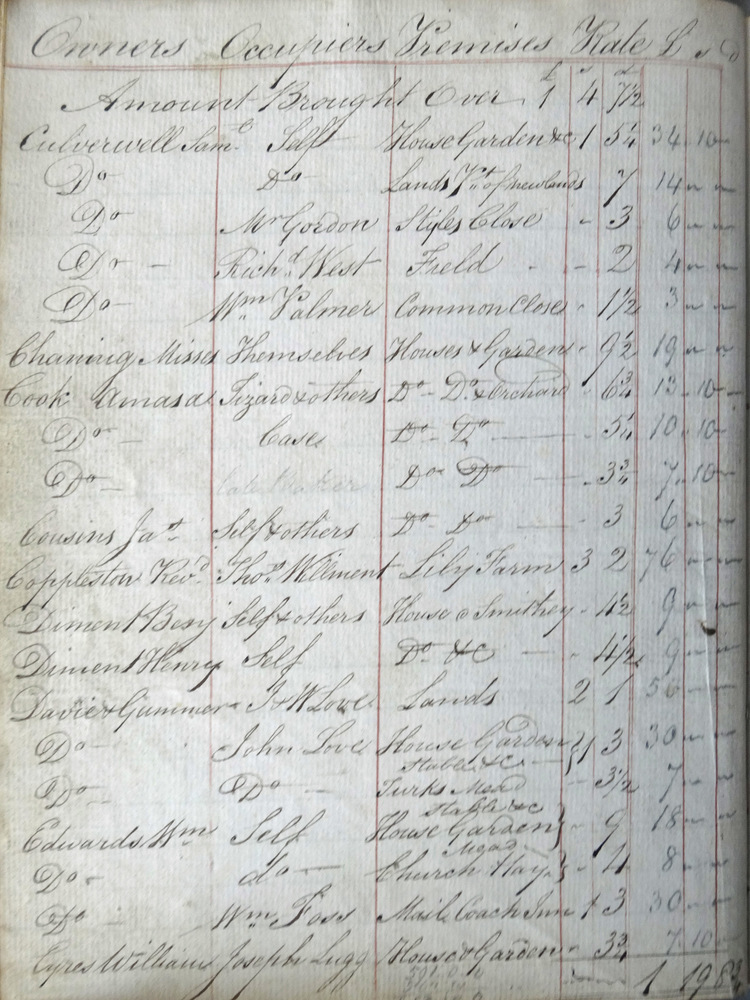 Owners Occupiers Premises Rate £ s d
£ s d
Amount Brought Over 1 4 7½
Culverwell Saml Self House Garden &c 1 5¼ 34 10 -
Do Do Lands Pt of newlands 7 14 - -
Do Mr Gordon Styles Close - 3 6 - -
Do - Richd West Field - - 2 4 - -
Do Wm Palmer Common Close - 1½ 3 - -
Chaning Misses Themselves Houses & Garden - 9½ 19 - -
Cook Amasa Lizard & others Do - Do & Orchard - 6¾ 13 10 -
Do Case Do - Do - 5¼ 10 10 -
Do Do - Do - 3¾ 7 10 -
Cousins Jas Self & others Do - Do - 3 6 - -
Coppleston Revd Thos Willment Lily Farm 3 2 76 - -
Diment Benj Self & others House & Smithey - 4½ 9 - -
Diment Henry Self Do - &c - 4½ 9 - -
Davie & Gummer J & W Lowe Lands 2 1 50 - -
Do John Love House Garden } 1 3 30 - -
Stable &c
Do Do Turks Mead - 3½ 7 - -
Stable &c
Edwards Wm Self House Garden } - 9 18 - -
Do do Church Hay } - 4 8 - -
Do Wm Foss Mail Coach Inn 1 3 30 - -
Eyres William Joseph Lugg House & Garden - 3¾ 7 10 -
1 19